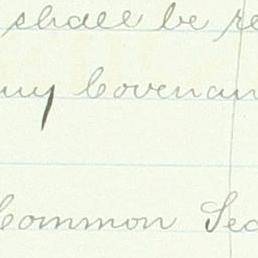 shall be re
ny Covenan
Common Sec